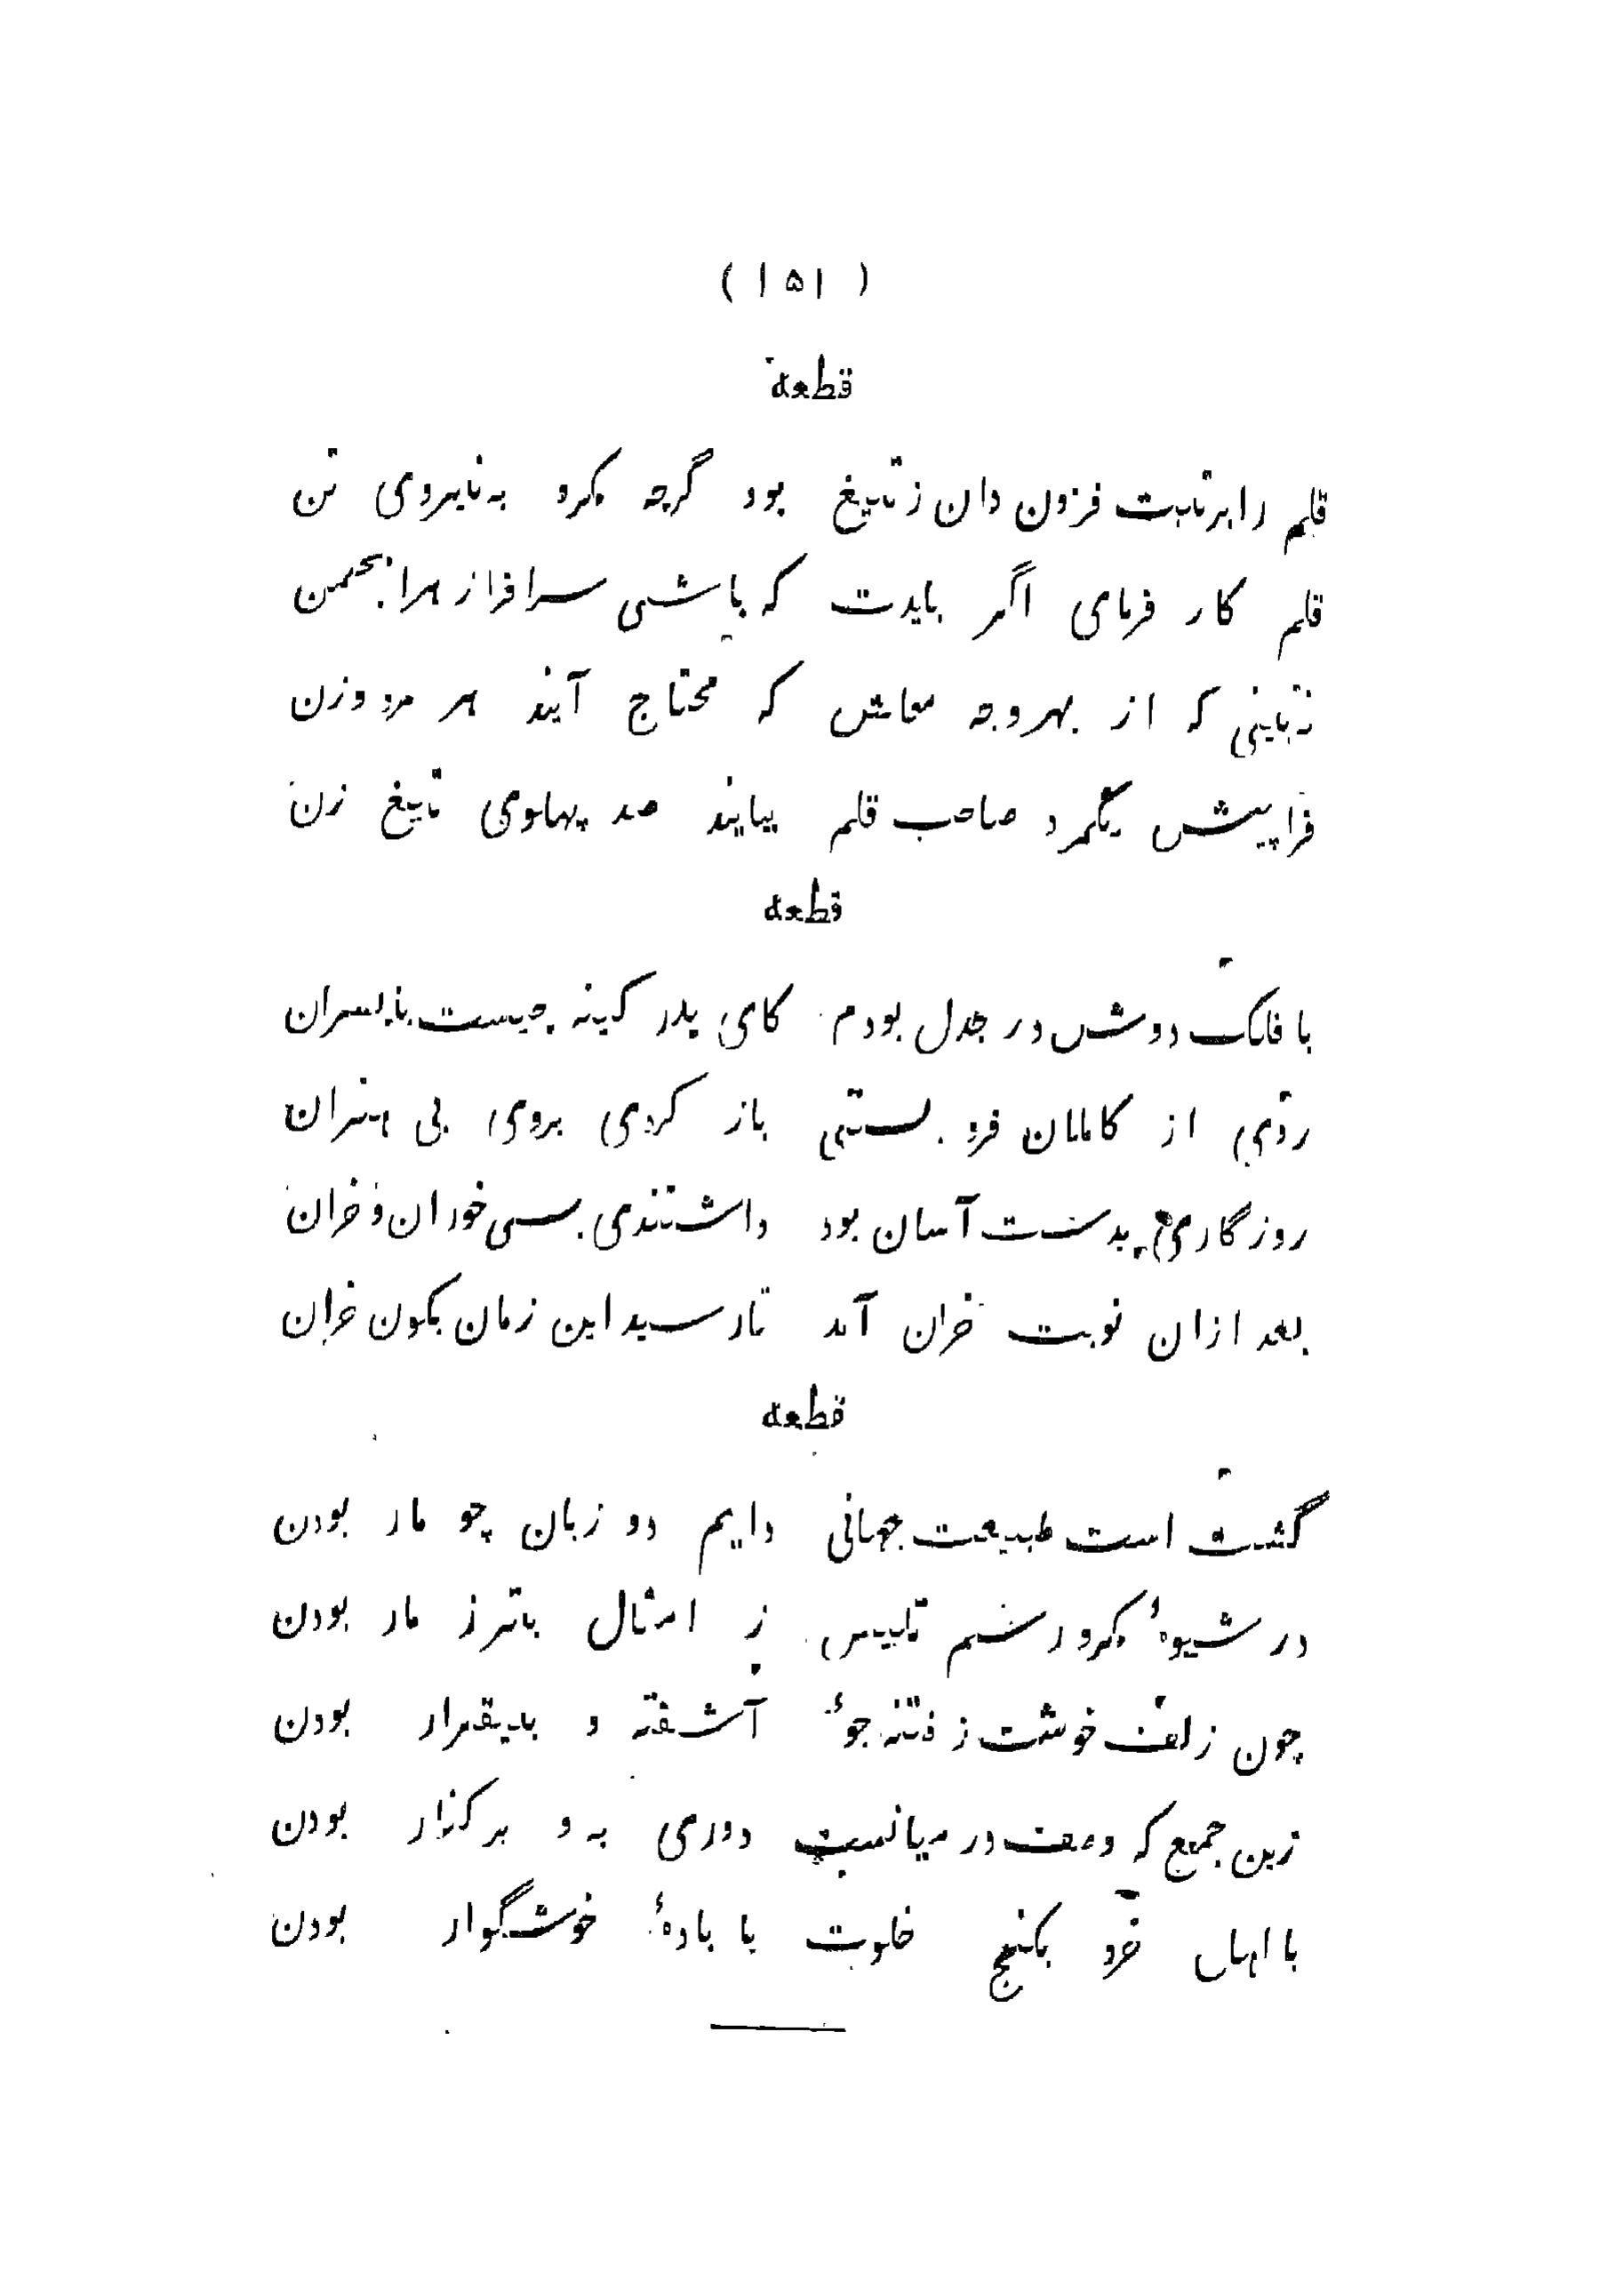 ( ۱۵۱ )
قطعه
قلم را برتبت فزون دان ز تیغ بود گرچه مکرو به نیروی تن
قلم کار فرمای اگر بایدت که باشی سرافراز هر انجمن
نه بینی که از بهر وجه معاش که محتاج آیند هر مرد و زن
فرا پیش یکمرد صاحب قلم بیایند صد پهلوی تیغ زن
قطعه
با فلک دوش در جدل بودم کای پدر کینه چیست با پسران
روی از کاملان فرو بستی باز کردی بروی بی هنران
روزگاری بدست آسان بود داشتندی بسی خوران و خران
بعد ازان نوبت خران آمد تا رسید این زمان بکون خران
قطعه
گشت است طبیعت جهانی دایم دو زبان چو مار بودن
در شیوهٔ مکر و رسم تلبیس ز امثال بتر ز مار بودن
چون زلف خوشت ز فتنه جوئ آشفته و بیقرار بودن
زین جمع که وصف در میانست دوری به و بر کنار بودن
با اهل خرد بکنج خلوت با بادهٔ خوشگوار بودن